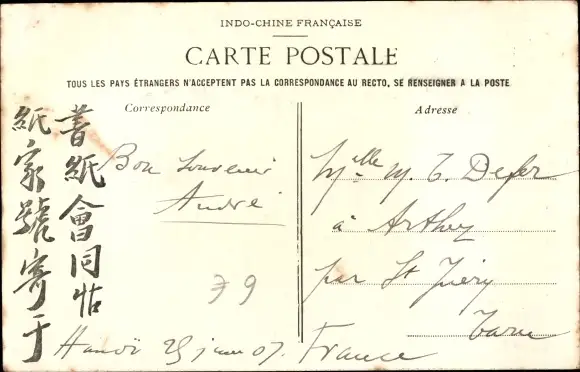 INDO-CHINE FRANÇAISE
CARTE POSTALE
TOUS LES PAYS ÉTRANGERS N'ACCEPTENT PAS LA CORRESPONDANCE AU RECTO, SE RENSEIGNER A LA POSTE
Correspondance
書紙會同怙
紙家號寄于
Bon souvenir
André
39
Hanoï 25 juin 07.
Adresse
Mlle M. T. Defer
à Arthez
par St Juéry
Tarn
France